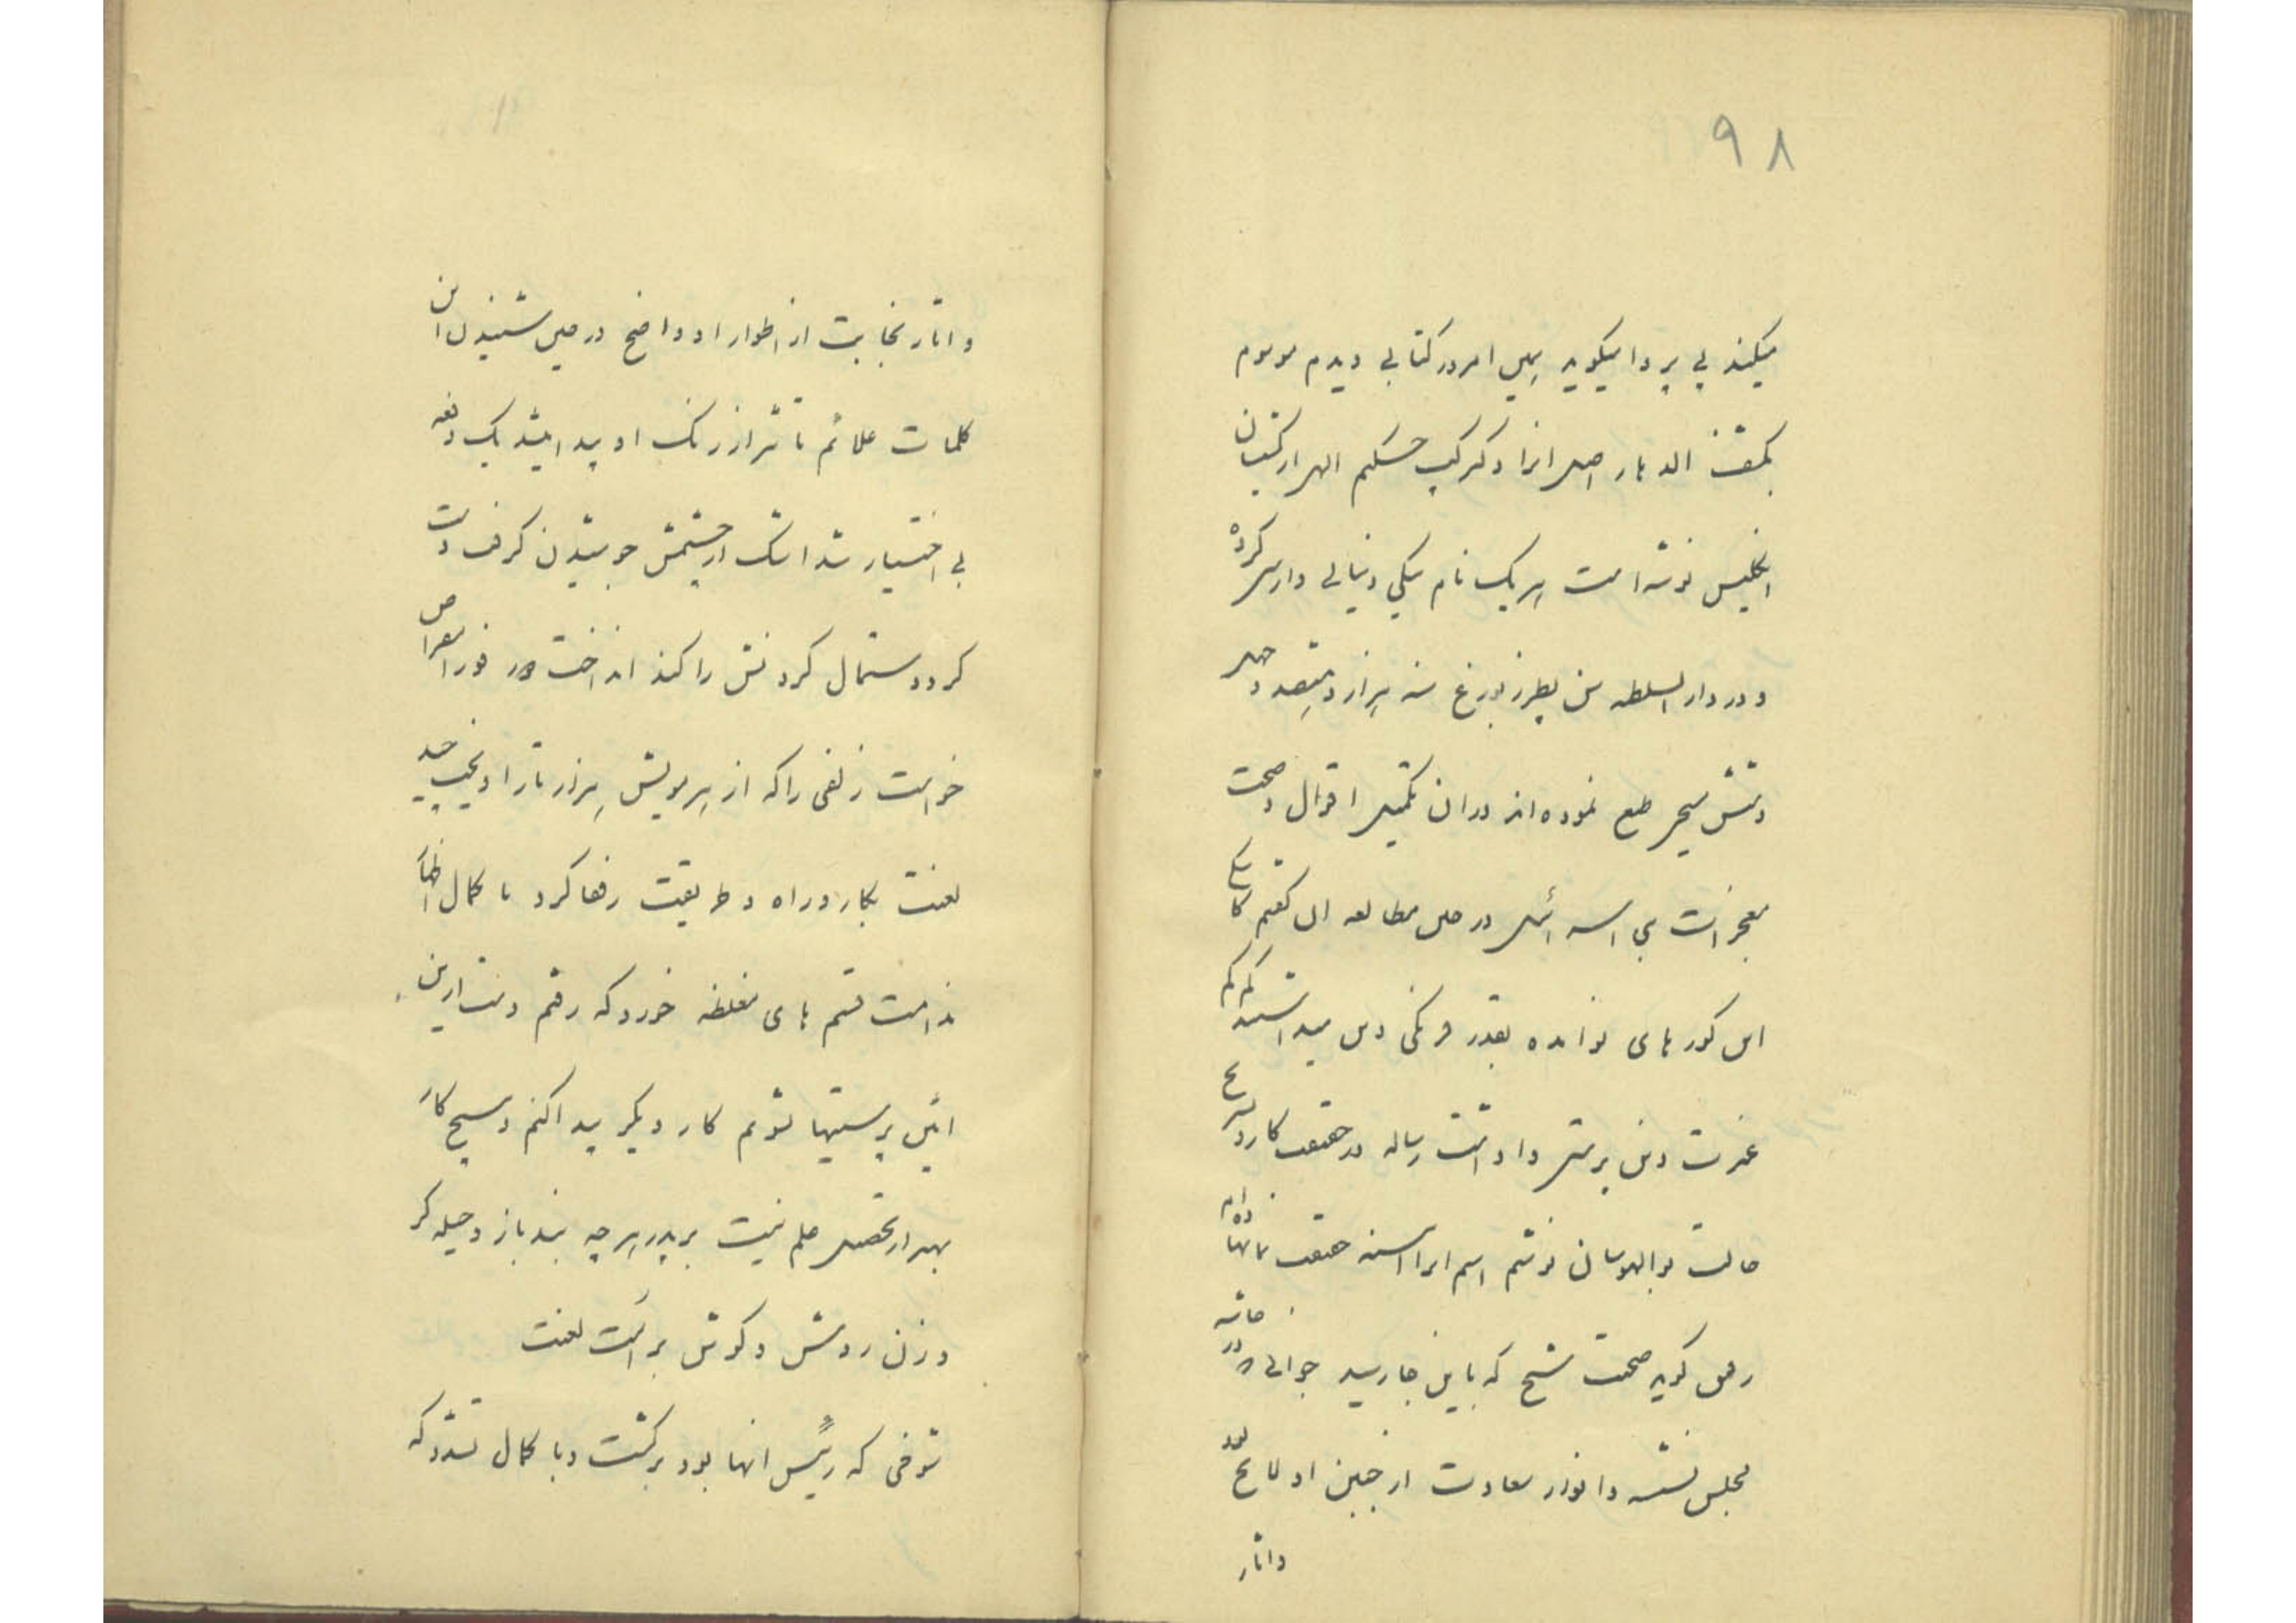 ۹۸
میکند بی پروا میگوید همین امروز کتابی دیدم موسوم
بکشف الدیار اصل انرا دکتر حکیم الهی از کشیشان
انگلیس نوشته است بر یک نام ینگی دنیائی وارسی کرده
و در دار السلطنه بطرزبورغ سنه هزار و هیصد و چهل
و شش مسیحی طبع نموده اند در ان تکمیل اقوال و صحت
معجزات بنی اسرائیل در حین مطالعه ان گفتم کاش
این کورهای نوامده بقدر فرنگی دین میداشتند که کم
غیرت دین پرستی را داشت رساله در حقیقت کار و شرح
حالت بوالهوسان نوشتم اسم انرا حقیقت نامه نهادم
گوید صحبت شیخ که باین جا رسید جوانی در حاشیه
مجلس نشسته و انوار سعادت از جبین او لایح بود
و اثار
و اثار نجابت از اطوار او واضح در حین شنیدن این
کلمات علائم تاثر از رنگ او پیدا میشد یک دفعه
بی اختیار شد اشک از چشمش جوشیدن گرفت دست
کرد و دستمال گردنش را کند انداخت و فورا مقراض
خواست زلفی را که از هر مویش هزار ناز او میچید
لعنت بکار و راه و طریقت رفقا کرد با کمال اظهار
ندامت قسم های مغلظه خورد که رفتم دست از این
ائین پرستیها بشویم کار دیگر پیدا کنم و هیچ کار
بهتر از تحصیل علم نیست بر پدر هر چه بند باز و حیله گر
و زن روش و گوش بر است لعنت
شوخی که رئیس انها بود برگشت و با کمال تشدد که